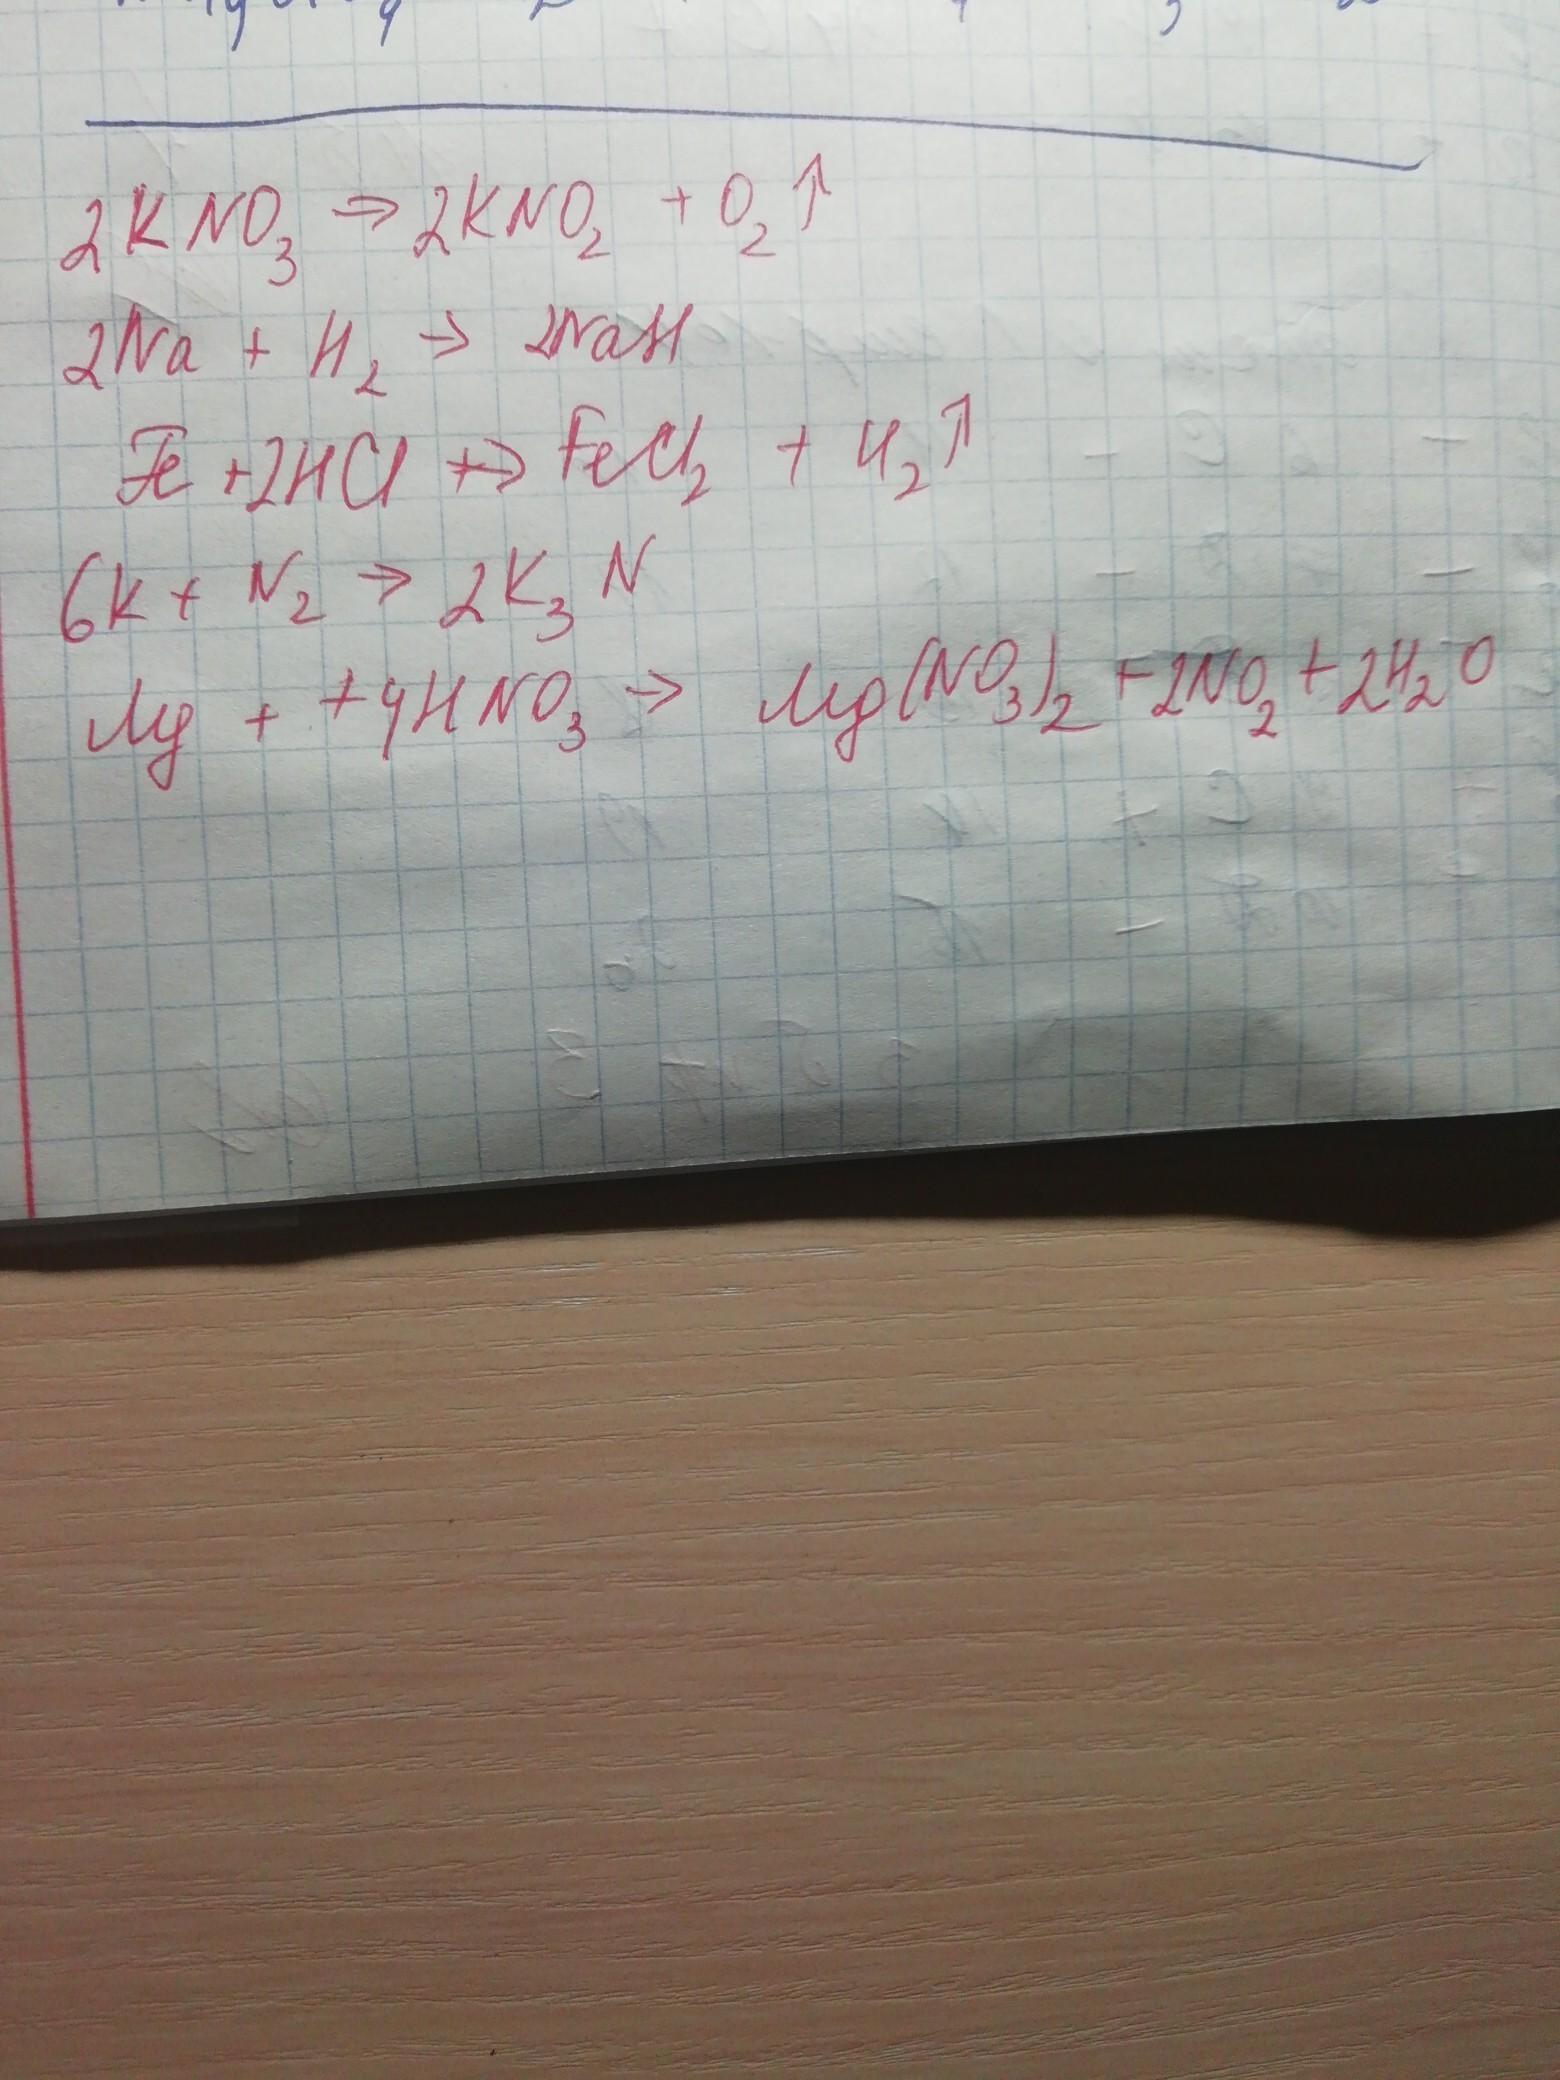 2KNO₃ → 2KNO₂ + O₂↑
2Na + H₂ → 2NaH
Fe +2HCl +→ FeCl₂ + H₂↑
6K + N₂ → 2K₃N
Mg + +4HNO₃ → Mg(NO₃)₂ +2NO₂ + 2H₂O